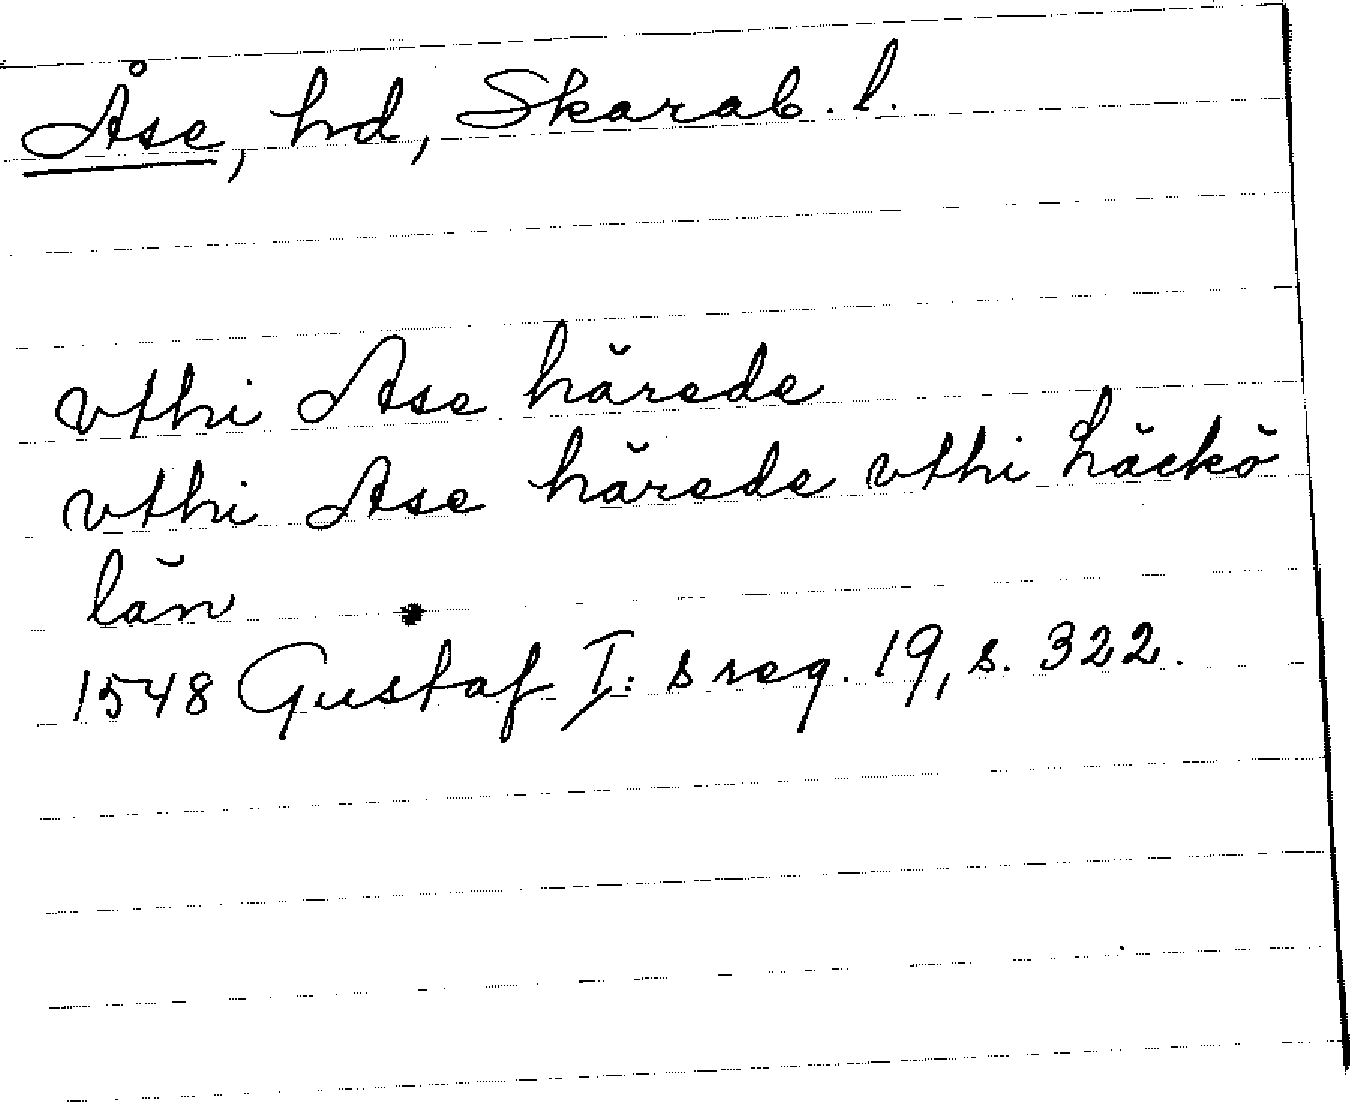 Åse, hd, Skarab. l.
vthi Ase hårede
vthi Ase hårede vthi Läckö
län
1548 Gustaf I: s reg. 19, s. 322.